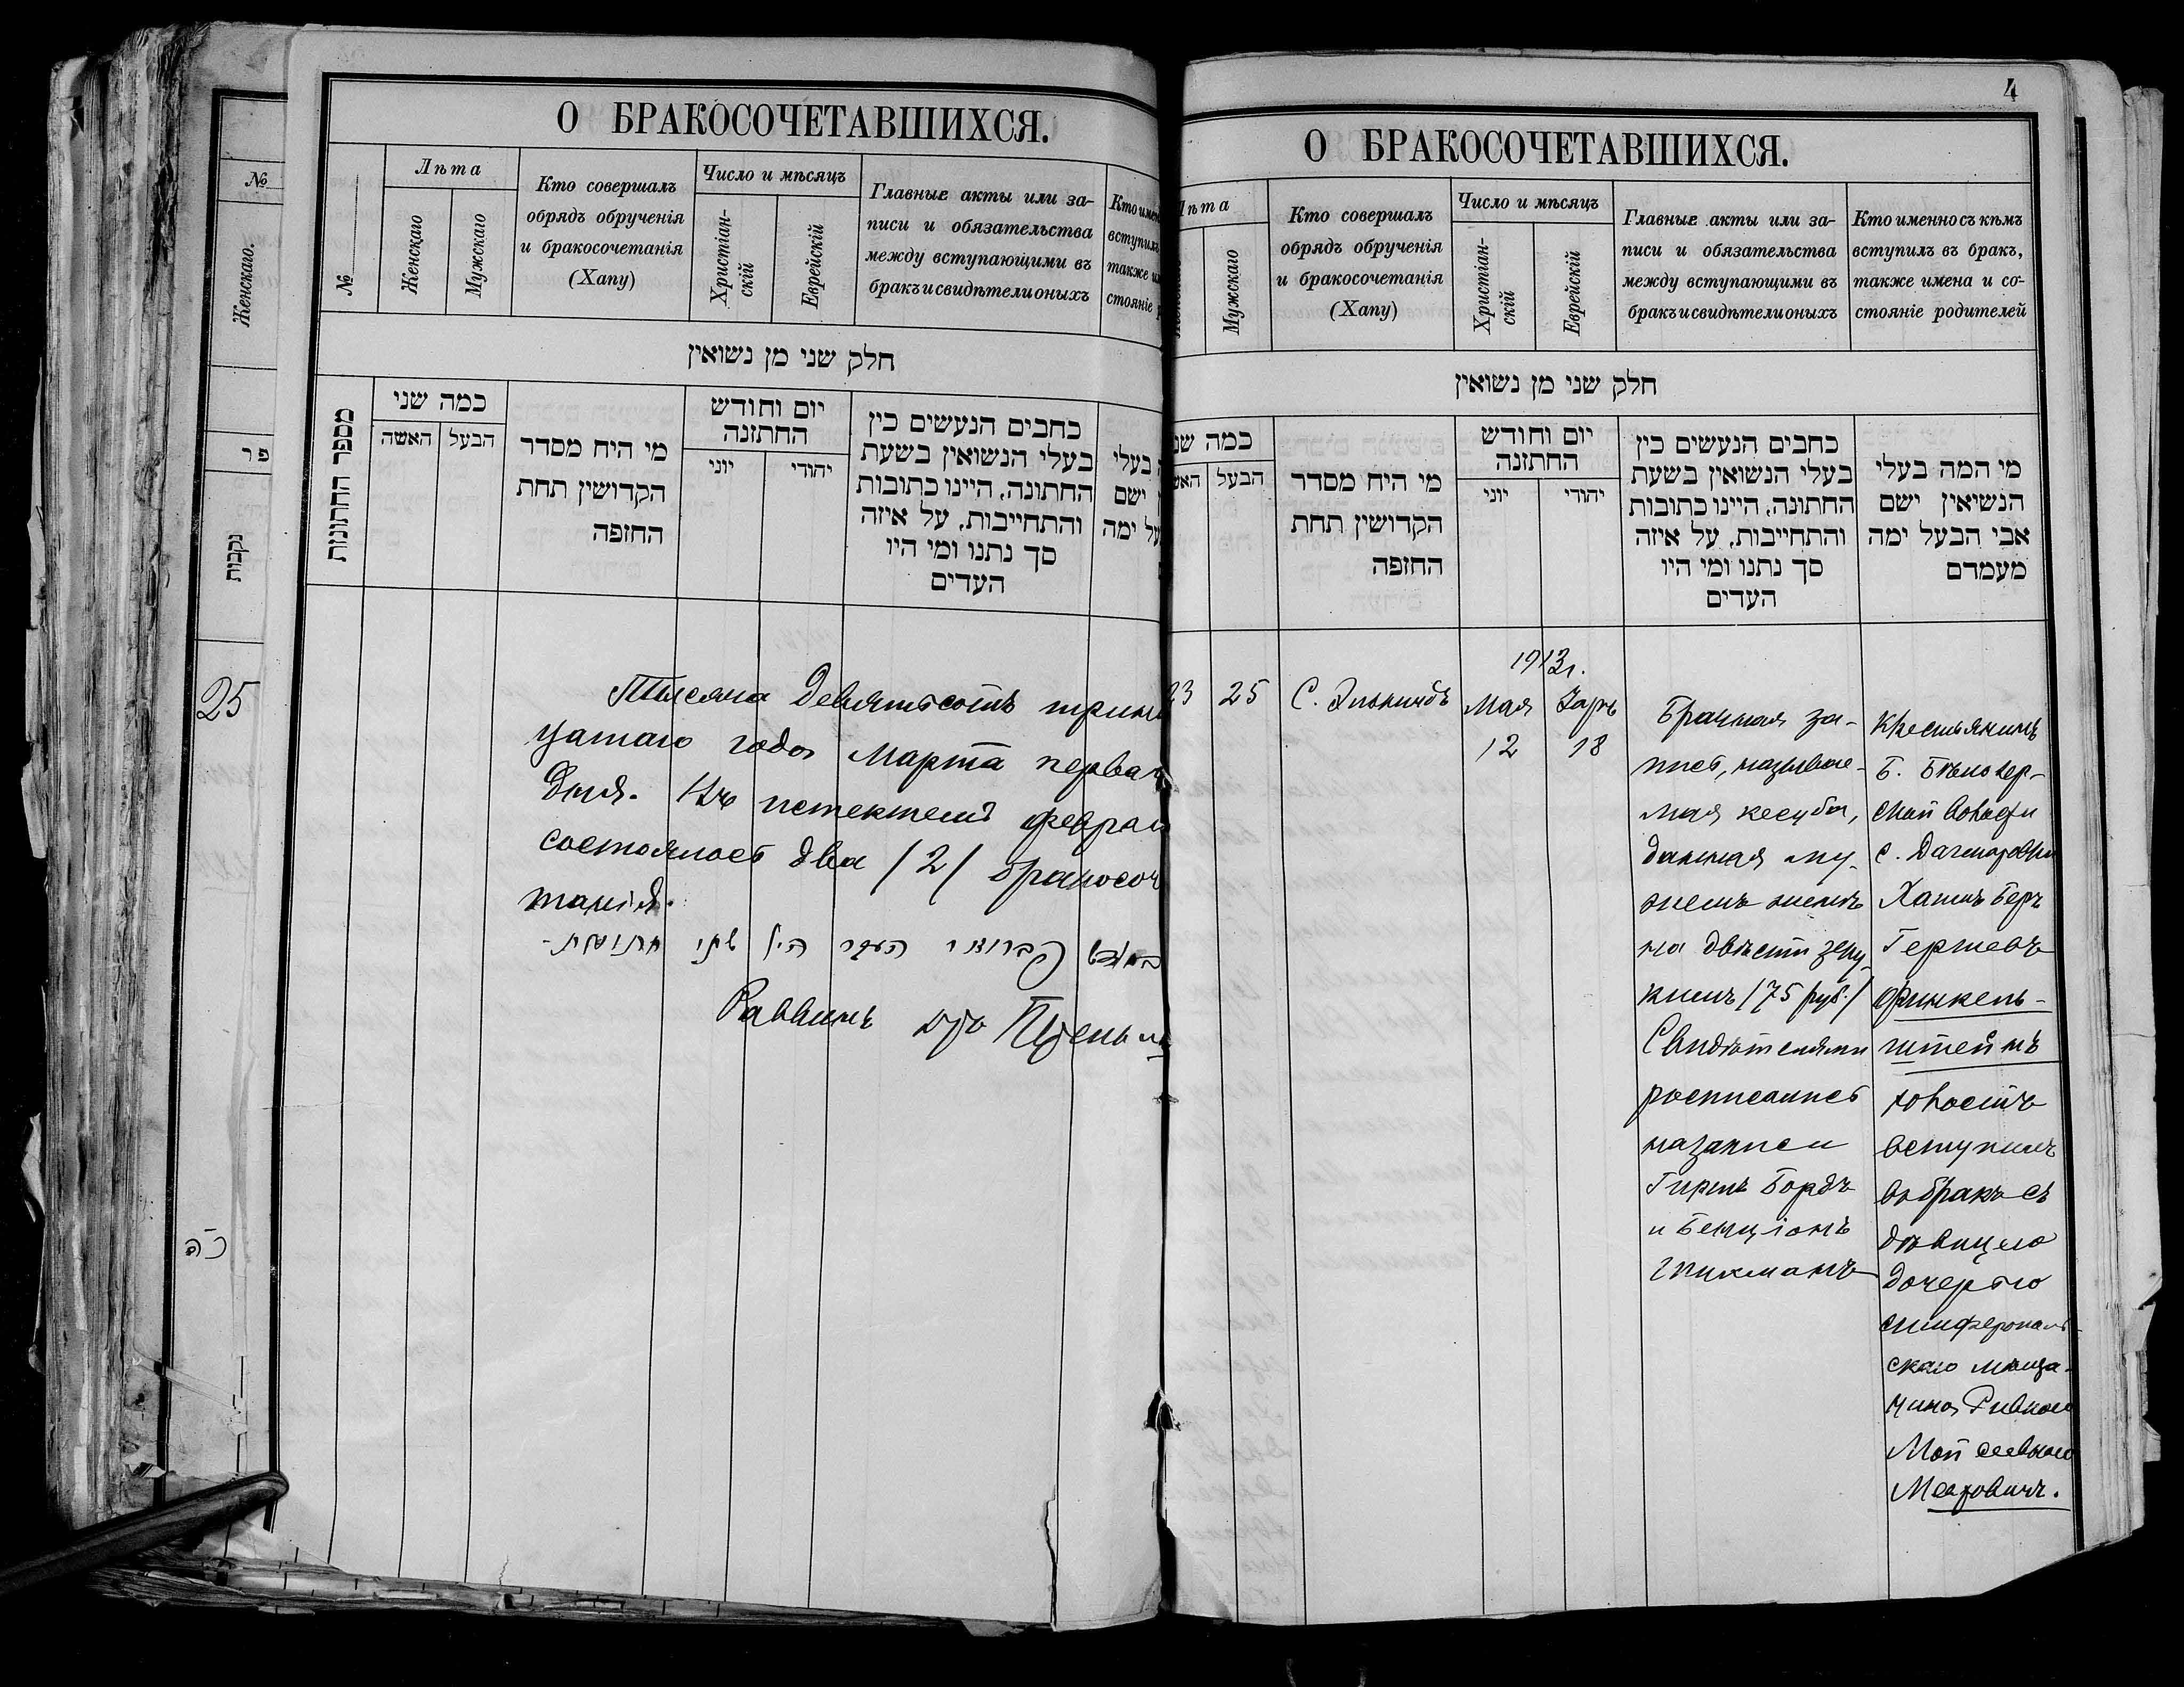 №
Женскаго.
פר
נקבות
25
כ״ה
О БРАКОСОЧЕТАВШИХСЯ.
№
Лѣта
Женскаго
Мужскаго
Кто совершалъ
обрядъ обрученія
и бракосочетанія
(Хапу)
Число и мѣсяцъ
Христіан-
скій
Еврейскій
Главные акты или за-
писи и обязательства
между вступающими въ
бракъ и свидѣтели оныхъ
Кто имен
вступилъ
также и
стояніе
חלק שני מן נשואין
מספר החתונות
כמה שני
האשה
הבעל
מי היח מסדר
הקדושין תחת
החזפה
יום וחודש
החתזנה
יוני
יהודי
כחבים הנעשים כין
בעלי הנשואין בשעת
החתונה, היינו כתובות
והתחייבות, על איזה
סך נתנו ומי היו
העדים
בעלי
ישם
ימה
Тысяча девятьсотъ трина
цатаго года Марта перваг
дня. Въ истекшемъ феврал
состоялось два /2/ бракосоч
танія.
שתי חתונות -
Раввинъ
4
О БРАКОСОЧЕТАВШИХСЯ.
Лѣта
Мужскаго
Кто совершалъ
обрядъ обрученія
и бракосочетанія
(Хапу)
Число и мѣсяцъ
Христіан-
скій
Еврейскій
Главные акты или за-
писи и обязательства
между вступающими въ
бракъ и свидѣтели оныхъ
Кто именно съ кѣмъ
вступилъ въ бракъ,
также имена и со-
стояніе родителей
חלק שני מן נשואין
כמה שנ
האש
הבעל
מי היח מסדר
הקדושין תחת
החזפה
יום וחודש
החתזנה
יוני
יהודי
כחבים הנעשים כין
בעלי הנשואין בשעת
החתונה, היינו כתובות
והתחייבות, על איזה
סך נתנו ומי היו
העדים
מי המה בעלי
הנשיאין ישם
אבי הבעל ימה
מעמדם
1913 г.
23
25
С. Элькиндъ
Мая
12
Іаръ
18
Брачная за-
пись, называе-
мая кесуба,
данная му-
жемъ женѣ
на двѣсти зеху-
кимъ /75 руб./
Свидѣтелями
росписались
на записи
Гиршъ Бордъ
и Бенціонъ
Гликманъ
Крестьянинъ
Б. Бѣлозер-
ской волости
с.
Хаимъ Беръ
Гершевъ
Финкель-
штейнъ
холостъ
вступилъ
въ бракъ съ
дѣвицею
дочерью
симферополь-
скаго мѣща-
нина Ривкою
Мойсеевною
Меяровичъ.